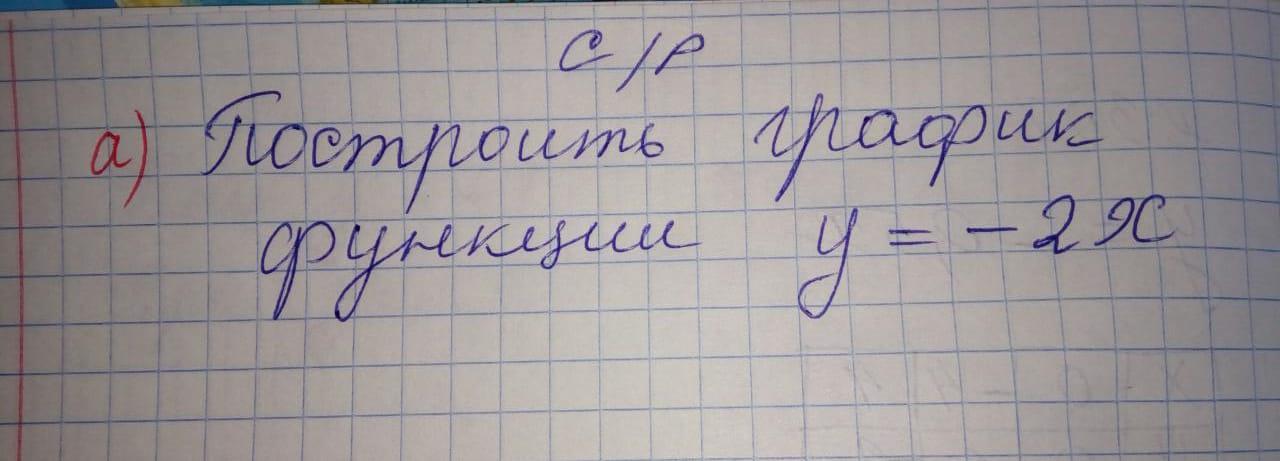 С/Р
а) Построить график
функции у = - 2х